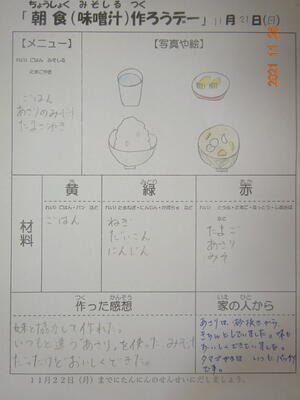 ちょうしょく みそしる つく
「朝食(味噌汁)作ろうデー」11月21日(日)
2021 11 26
【メニュー】
【写真や絵】
れい) ごはん みそしる
たまごやき
ごはん
あさりのみそ汁
たまごやき
き
黄
みどり
緑
あか
赤
ざいりょう
材料
れい) ごはん・パン など
れい) たまねぎ・にんじん・かぼちゃ など
ごはん
ねぎ
だいこん
にんじん
たまご
あさり
みそ
つく かんそう
作った感想
いえ ひと
家の人から
妹と協力して作れた。
いつもと違うあさりを使った、みそ汁
だったけどおいしくできた。
あさりは砂抜きから
きちんとしていました。味も
おいしくできていました。
タマゴやきは いつも バッチリ
です。
11月22日(月)までにたんにんのせんせいにだしましょう。